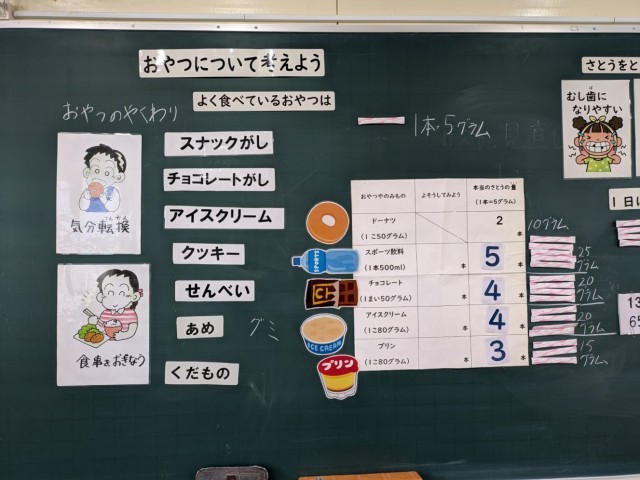 おやつについて考えよう
さとうをと
よく食べているおやつは
おやつのやくわり
気分転換
食事をおぎなう
スナックがし
チョコレートがし
アイスクリーム
クッキー
せんべい
あめ
グミ
くだもの
1本・5グラム
おやつやのみもの
よそうしてみよう
本当のさとうの量
(1本=5グラム)
ドーナツ
(1こ50グラム)
2
本
10グラム
スポーツ飲料
(1本500ml)
本
5
本
25
グラム
チョコレート
(1まい50グラム)
本
4
本
20
グラム
アイスクリーム
(1こ80グラム)
本
4
本
20
グラム
プリン
(1こ80グラム)
本
3
本
15
グラム
SPORTS
ICE CREAM
プリン
むし歯に
なりやすい
1日に
13
65